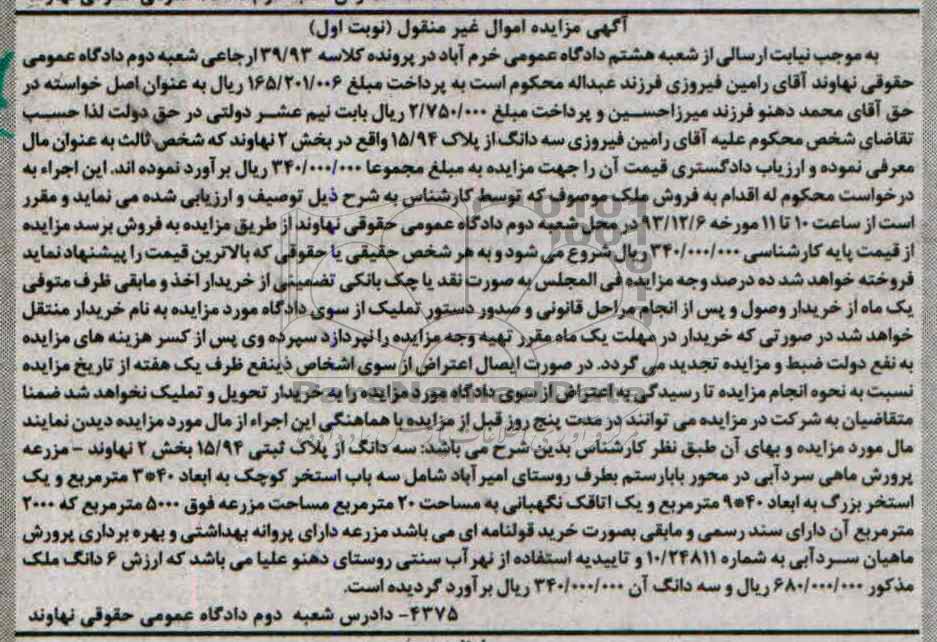 آگهی مزایده اموال غیر منقول (نوبت اول)
به موجب نیابت ارسالی از شعبه هشتم دادگاه عمومی خرم آباد در پرونده کلاسه ۳۹/۹۳ ارجاعی شعبه دوم دادگاه عمومی
حقوقی نهاوند آقای رامین فیروزی فرزند عبداله محکوم است به پرداخت مبلغ ۱۶۵/۲۰۱/۰۰۶ ریال به عنوان اصل خواسته در
حق آقای محمد دهنو فرزند میرزاحسین و پرداخت مبلغ ۲/۷۵۰/۰۰۰ ریال بابت نیم عشر دولتی در حق دولت لذا حسب
تقاضای شخص محکوم علیه آقای رامین فیروزی سه دانگ از پلاک ۱۵/۹۴ واقع در بخش ۲ نهاوند که شخص ثالث به عنوان مال
معرفی نموده و ارزیاب دادگستری قیمت آن را جهت مزایده به مبلغ مجموعا ۳۴۰/۰۰۰/۰۰۰ ریال بر آورد نموده اند. این اجراء به
درخواست محکوم له اقدام به فروش ملک موصوف که توسط کارشناس به شرح ذیل توصیف و ارزیابی شده می نماید و مقرر
است از ساعت ۱۰ تا ۱۱ مورخه ۹۳/۱۲/۶ در محل شعبه دوم دادگاه عمومی حقوقی نهاوند از طریق مزایده به فروش برسد مزایده
از قیمت پایه کارشناسی ۳۴۰/۰۰۰/۰۰۰ ریال شروع می شود و به هر شخص حقیقی یا حقوقی که بالاترین قیمت را پیشنهاد نماید
فروخته خواهد شد ده درصد وجه مزایده فی المجلس به صورت نقد یا چک بانکی تضمینی از خریدار اخذ و مابقی ظرف متوفی
یک ماه از خریدار وصول و پس از انجام مراحل قانونی و صدور دستور تملیک از سوی دادگاه مورد مزایده به نام خریدار منتقل
خواهد شد در صورتی که خریدار در مهلت یک ماه مقرر تهیه وجه مزایده را نپردازد سپرده وی پس از کسر هزینه های مزایده
به نفع دولت ضبط و مزایده تجدید می گردد. در صورت ایصال اعتراض از سوی اشخاص ذینفع ظرف یک هفته از تاریخ مزایده
نسبت به نحوه انجام مزایده تا رسیدگی به اعتراض از سوی دادگاه مورد مزایده را به خریدار تحویل و تملیک نخواهد شد ضمنا
متقاضیان به شرکت در مزایده می توانند در مدت پنج روز قبل از مزایده با هماهنگی این اجراء از مال مورد مزایده دیدن نمایند
مال مورد مزایده و بهای آن طبق نظر کارشناس بدین شرح می باشد: سه دانگ از پلاک ثبتی ۱۵/۹۴ بخش ۲ نهاوند - مزرعه
پرورش ماهی سردآبی در محور بابارستم بطرف روستای امیر آباد شامل سه باب استخر کوچک به ابعاد ۴۰*۳ مترمربع و یک
استخر بزرگ به ابعاد ۴۰*۹ مترمربع و یک اتاقک نگهبانی به مساحت ۲۰ مترمربع مساحت مزرعه فوق ۵۰۰۰ مترمربع که ۲۰۰۰
مترمربع آن دارای سند رسمی و مابقی بصورت خرید قولنامه ای می باشد مزرعه دارای پروانه بهداشتی و بهره برداری پرورش
ماهیان سردآبی به شماره ۱۰/۲۴۸۱۱ و تاییدیه استفاده از نهر آب سنتی روستای دهنو علیا می باشد که ارزش ۶ دانگ ملک
مذکور ۶۸۰/۰۰۰/۰۰۰ ریال و سه دانگ آن ۳۴۰/۰۰۰/۰۰۰ ریال بر آورد گردیده است.
۴۳۷۵- دادرس شعبه دوم دادگاه عمومی حقوقی نهاوند